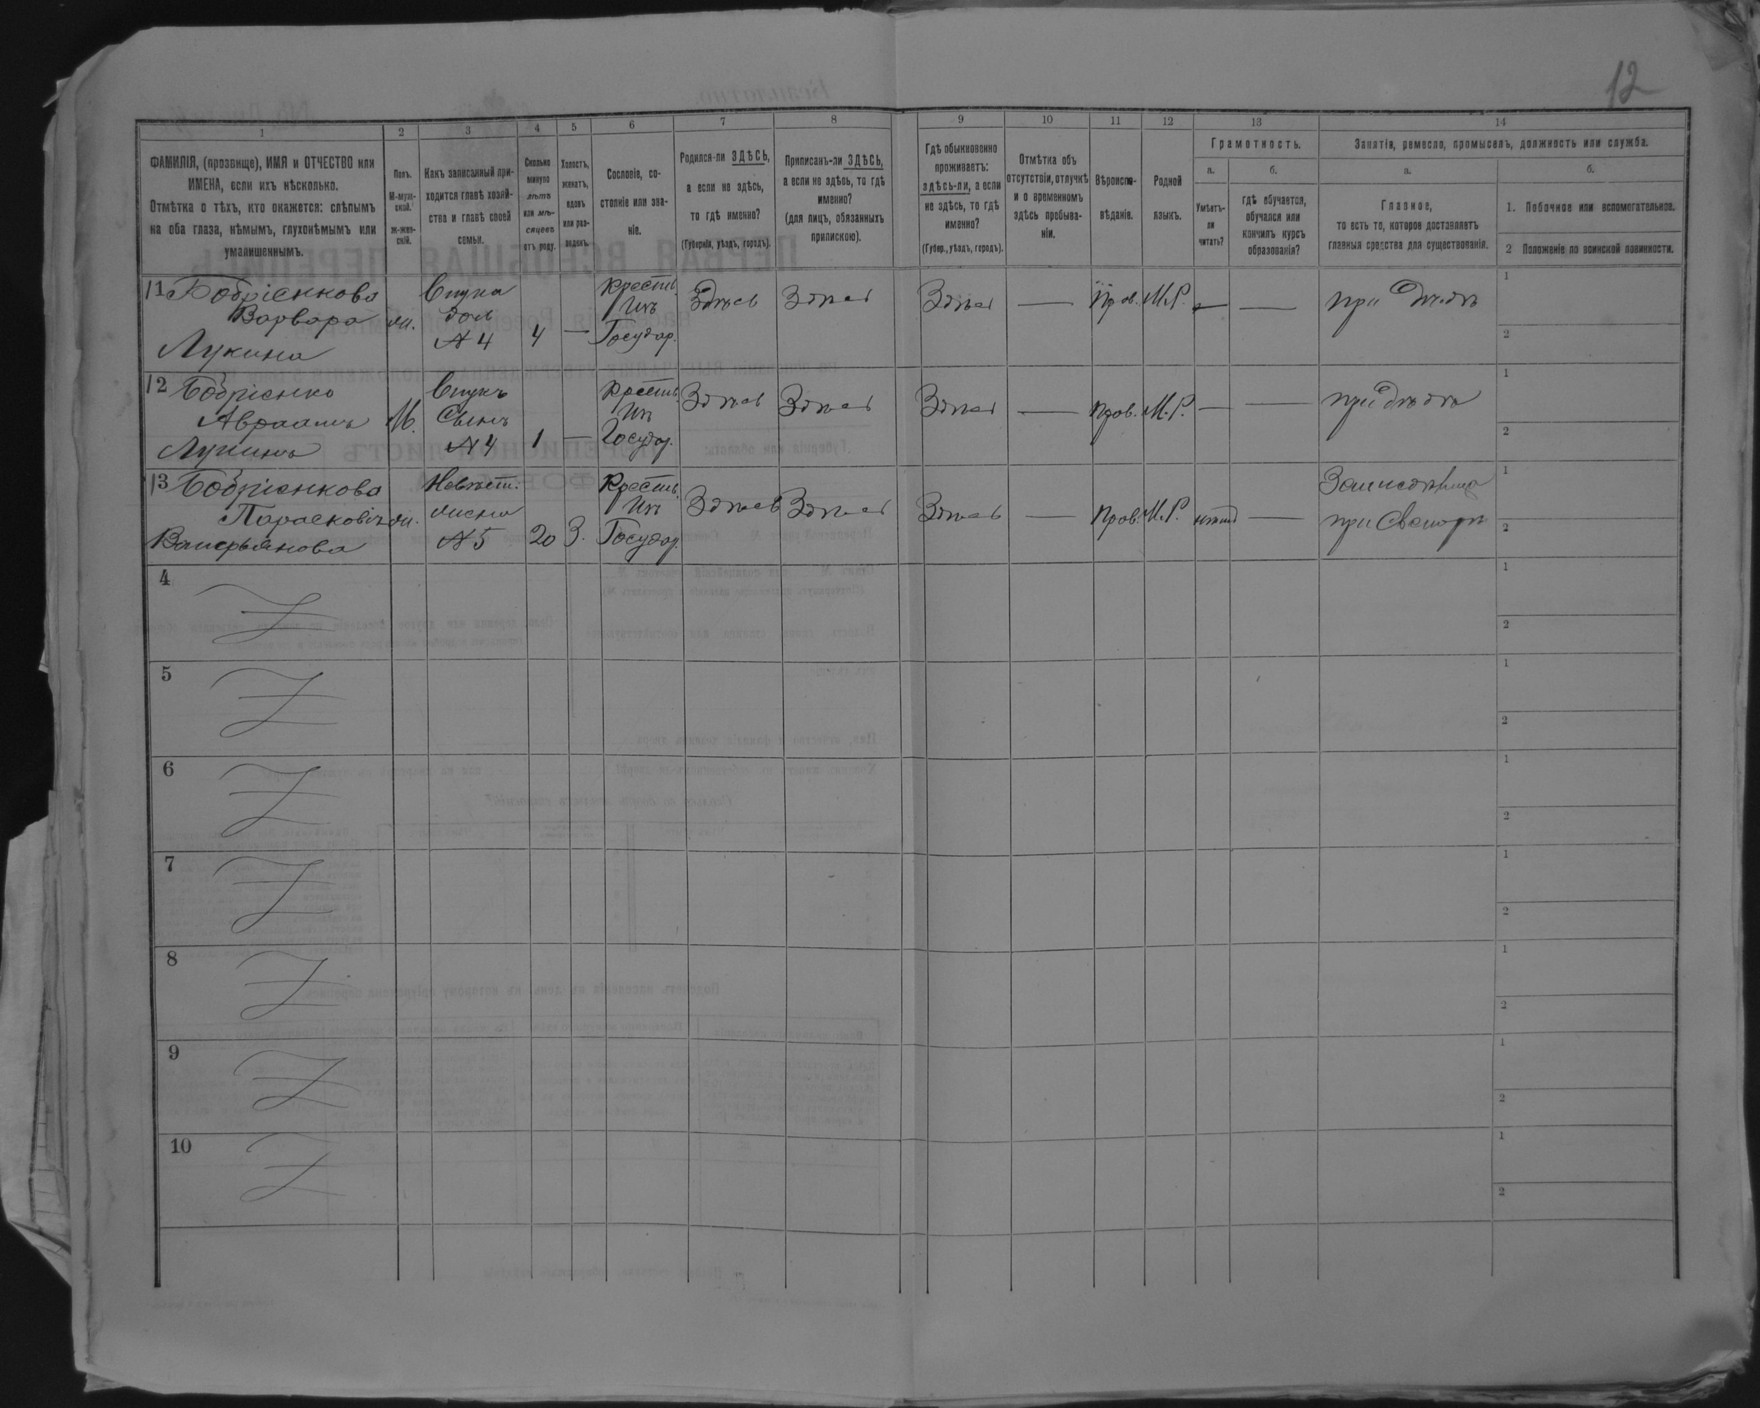 12
1 2 3 4 5 6 7 8 9 10 11 12 13 14
ФАМИЛІЯ, (прозвище), ИМЯ и ОТЧЕСТВО или
ИМЕНА, если ихъ нѣсколько.
Отмѣтка о тѣхъ, кто окажется: слѣпымъ
на оба глаза, нѣмымъ, глухонѣмымъ или
умалишеннымъ.
Полъ.
М-муж-
ской.
ж-жен-
скій.
Какъ записанный при-
ходится главѣ хозяй-
ства и главѣ своей
семьи.
Сколько
минуло
лѣтъ
или мѣ-
сяцевъ
отъ роду.
Холостъ,
женатъ,
вдовъ
или раз-
веденъ.
Сословіе, со-
стояніе или зва-
ніе.
Родился-ли ЗДѢСЬ,
а если не здѣсь,
то гдѣ именно?
(Губернія, уѣздъ, городъ).
Приписанъ-ли ЗДѢСЬ,
а если не здѣсь, то гдѣ
именно?
(для лицъ, обязанныхъ
припискою).
Гдѣ обыкновенно
проживаетъ:
здѣсь-ли, а если
не здѣсь, то гдѣ
именно?
(Губер., уѣздъ, городъ).
Отмѣтка объ
отсутствіи, отлучкѣ
и о временномъ
здѣсь пребыва-
ніи.
Вѣроиспо-
вѣданіе.
Родной
языкъ.
Грамотность.
а.
Умѣетъ-
ли
читать?
б.
гдѣ обучается,
обучался или
кончилъ курсъ
образованія?
Занятія, ремесло, промыселъ, должность или служба.
а.
Главное,
то есть то, которое доставляетъ
главныя средства для существованія.
б.
1. Побочное или вспомогательное.
2 Положеніе по воинской повинности.
11 Бобріенкова
Варвара
Лукина
Внука
доч
№ 4
4 —
Крестьян.
Изъ
Государ.
Здѣсь Здѣсь Здѣсь — Прав. М.Р. — — при Дѣдѣ
1
2
12 Бобріенко
Авраамъ
Лукинъ
М.
Внукъ
Сынъ
№ 4
1 —
Изъ
Государ.
Здѣсь Здѣсь Здѣсь — Прав. М.Р. — — при дѣдѣ
1
2
13 Бобріенкова
Парасковія
Валерьянова
Невѣст.
жена
№ 5
20 З.
Изъ
Государ.
Здѣсь Здѣсь Здѣсь — Прав. М.Р. нѣтъ —
при Свекорѣ
1
2
4
1
2
5
1
2
6
1
2
7
1
2
8
1
2
9
1
2
10
1
2